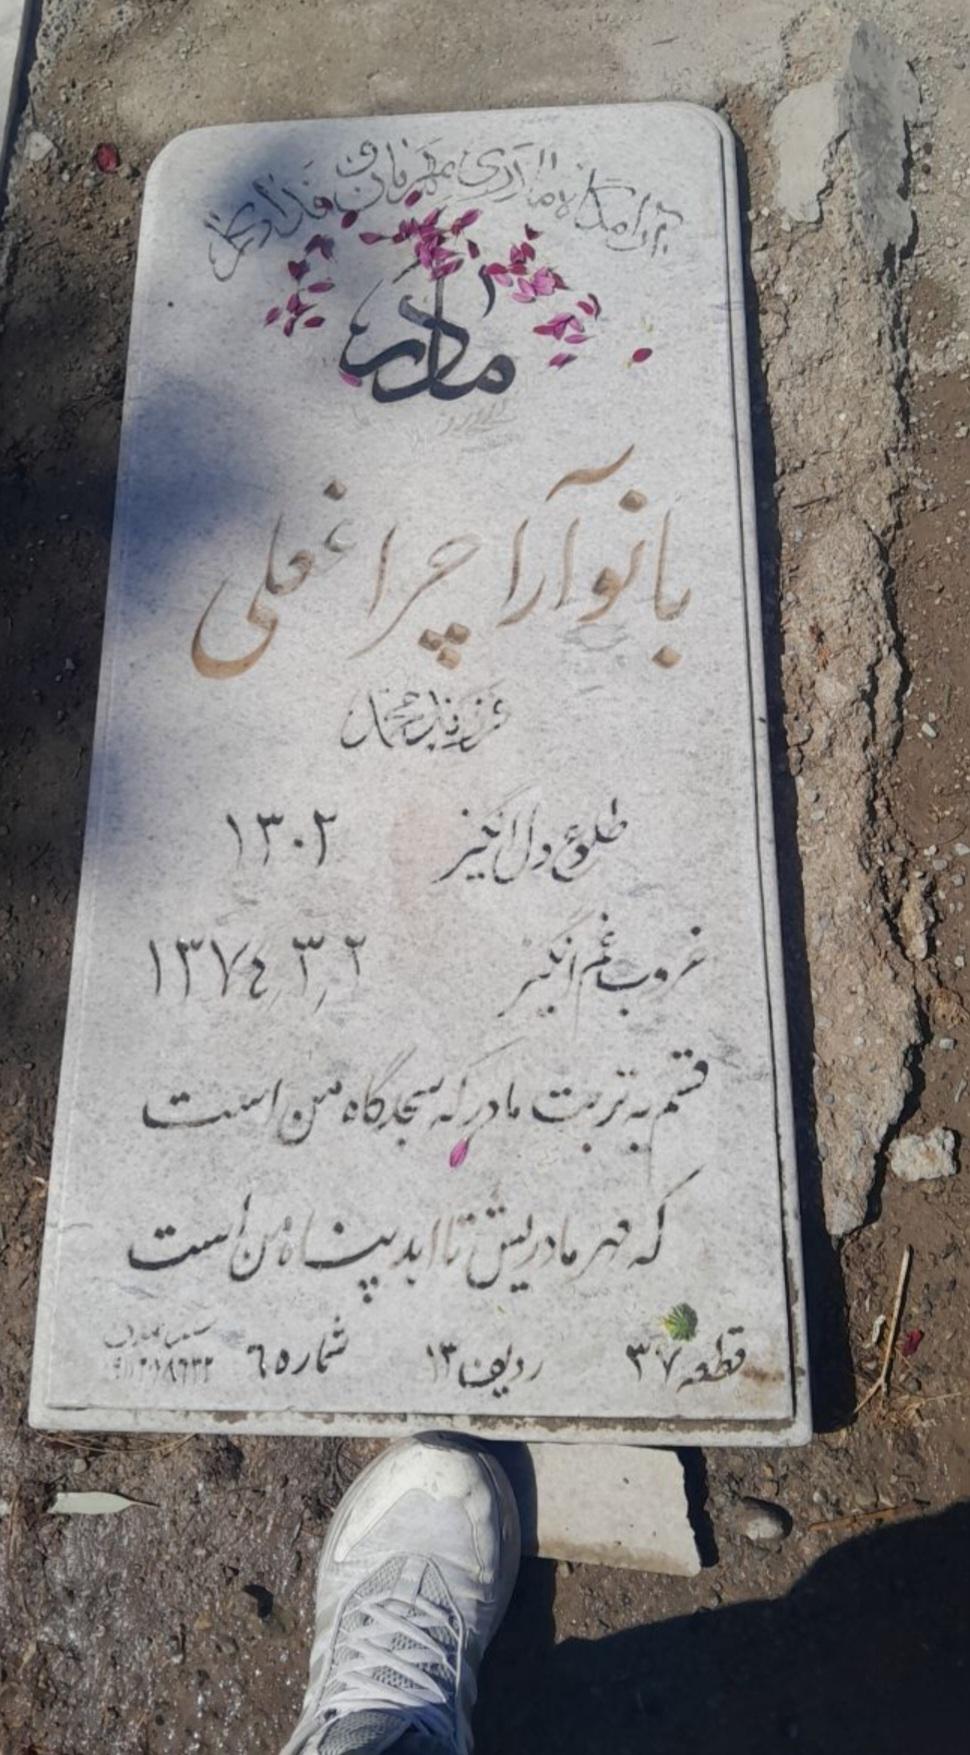 آرامگاه مادری مهربان و فداکار
مادر
بانو آرا چراغعلی
فرزند محمد
طلوع دل انگیز ۱۳۰۲
غروب غم انگیز ۱۳۷٤٫۳٫۲
قسم به تربت مادر که سجدگاه من است
که مهر مادریش تا ابد پناه من است
قطعه ۳۷ ردیف ۱۳ شماره ٦